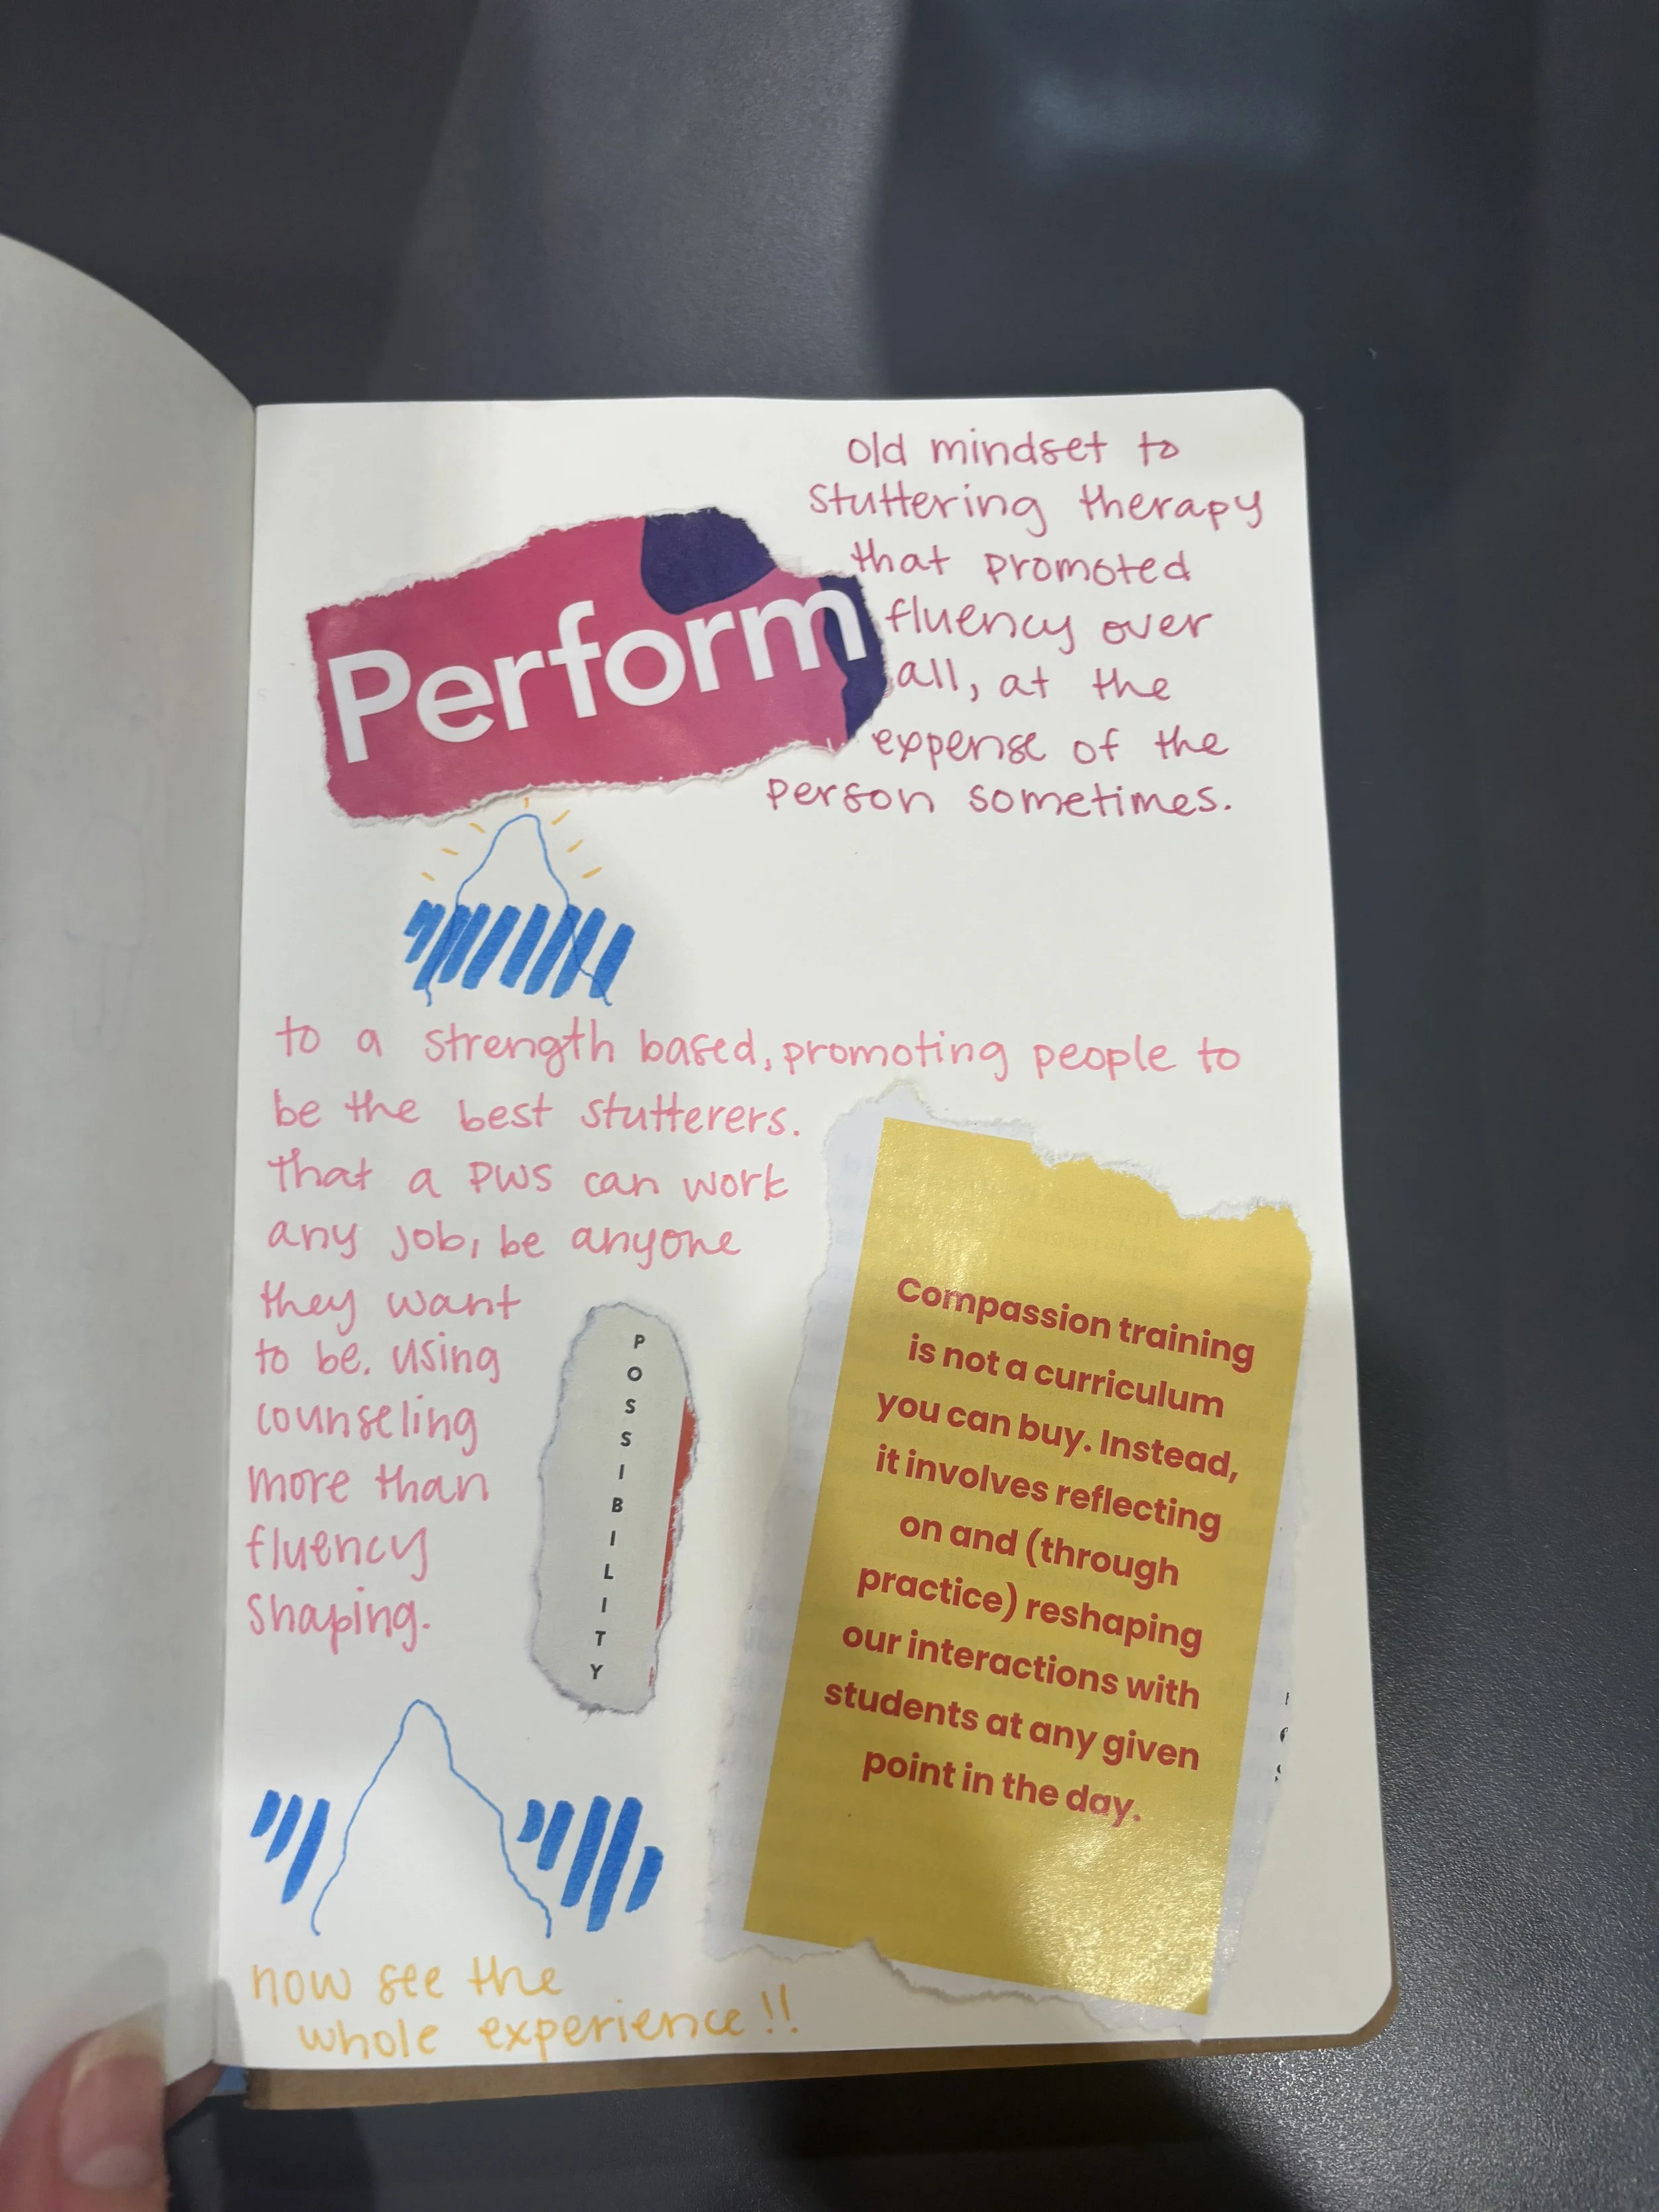 old mindset to
stuttering therapy
that promoted
fluency over
all, at the
expense of the
person sometimes.
Perform
to a strength based, promoting people to
be the best stutterers.
that a PWS can work
any job, be anyone
they want
to be. using
counseling
more than
fluency
shaping.
POSSIBILITY
Compassion training
is not a curriculum
you can buy. Instead,
it involves reflecting
on and (through
practice) reshaping
our interactions with
students at any given
point in the day.
now see the
whole experience!!